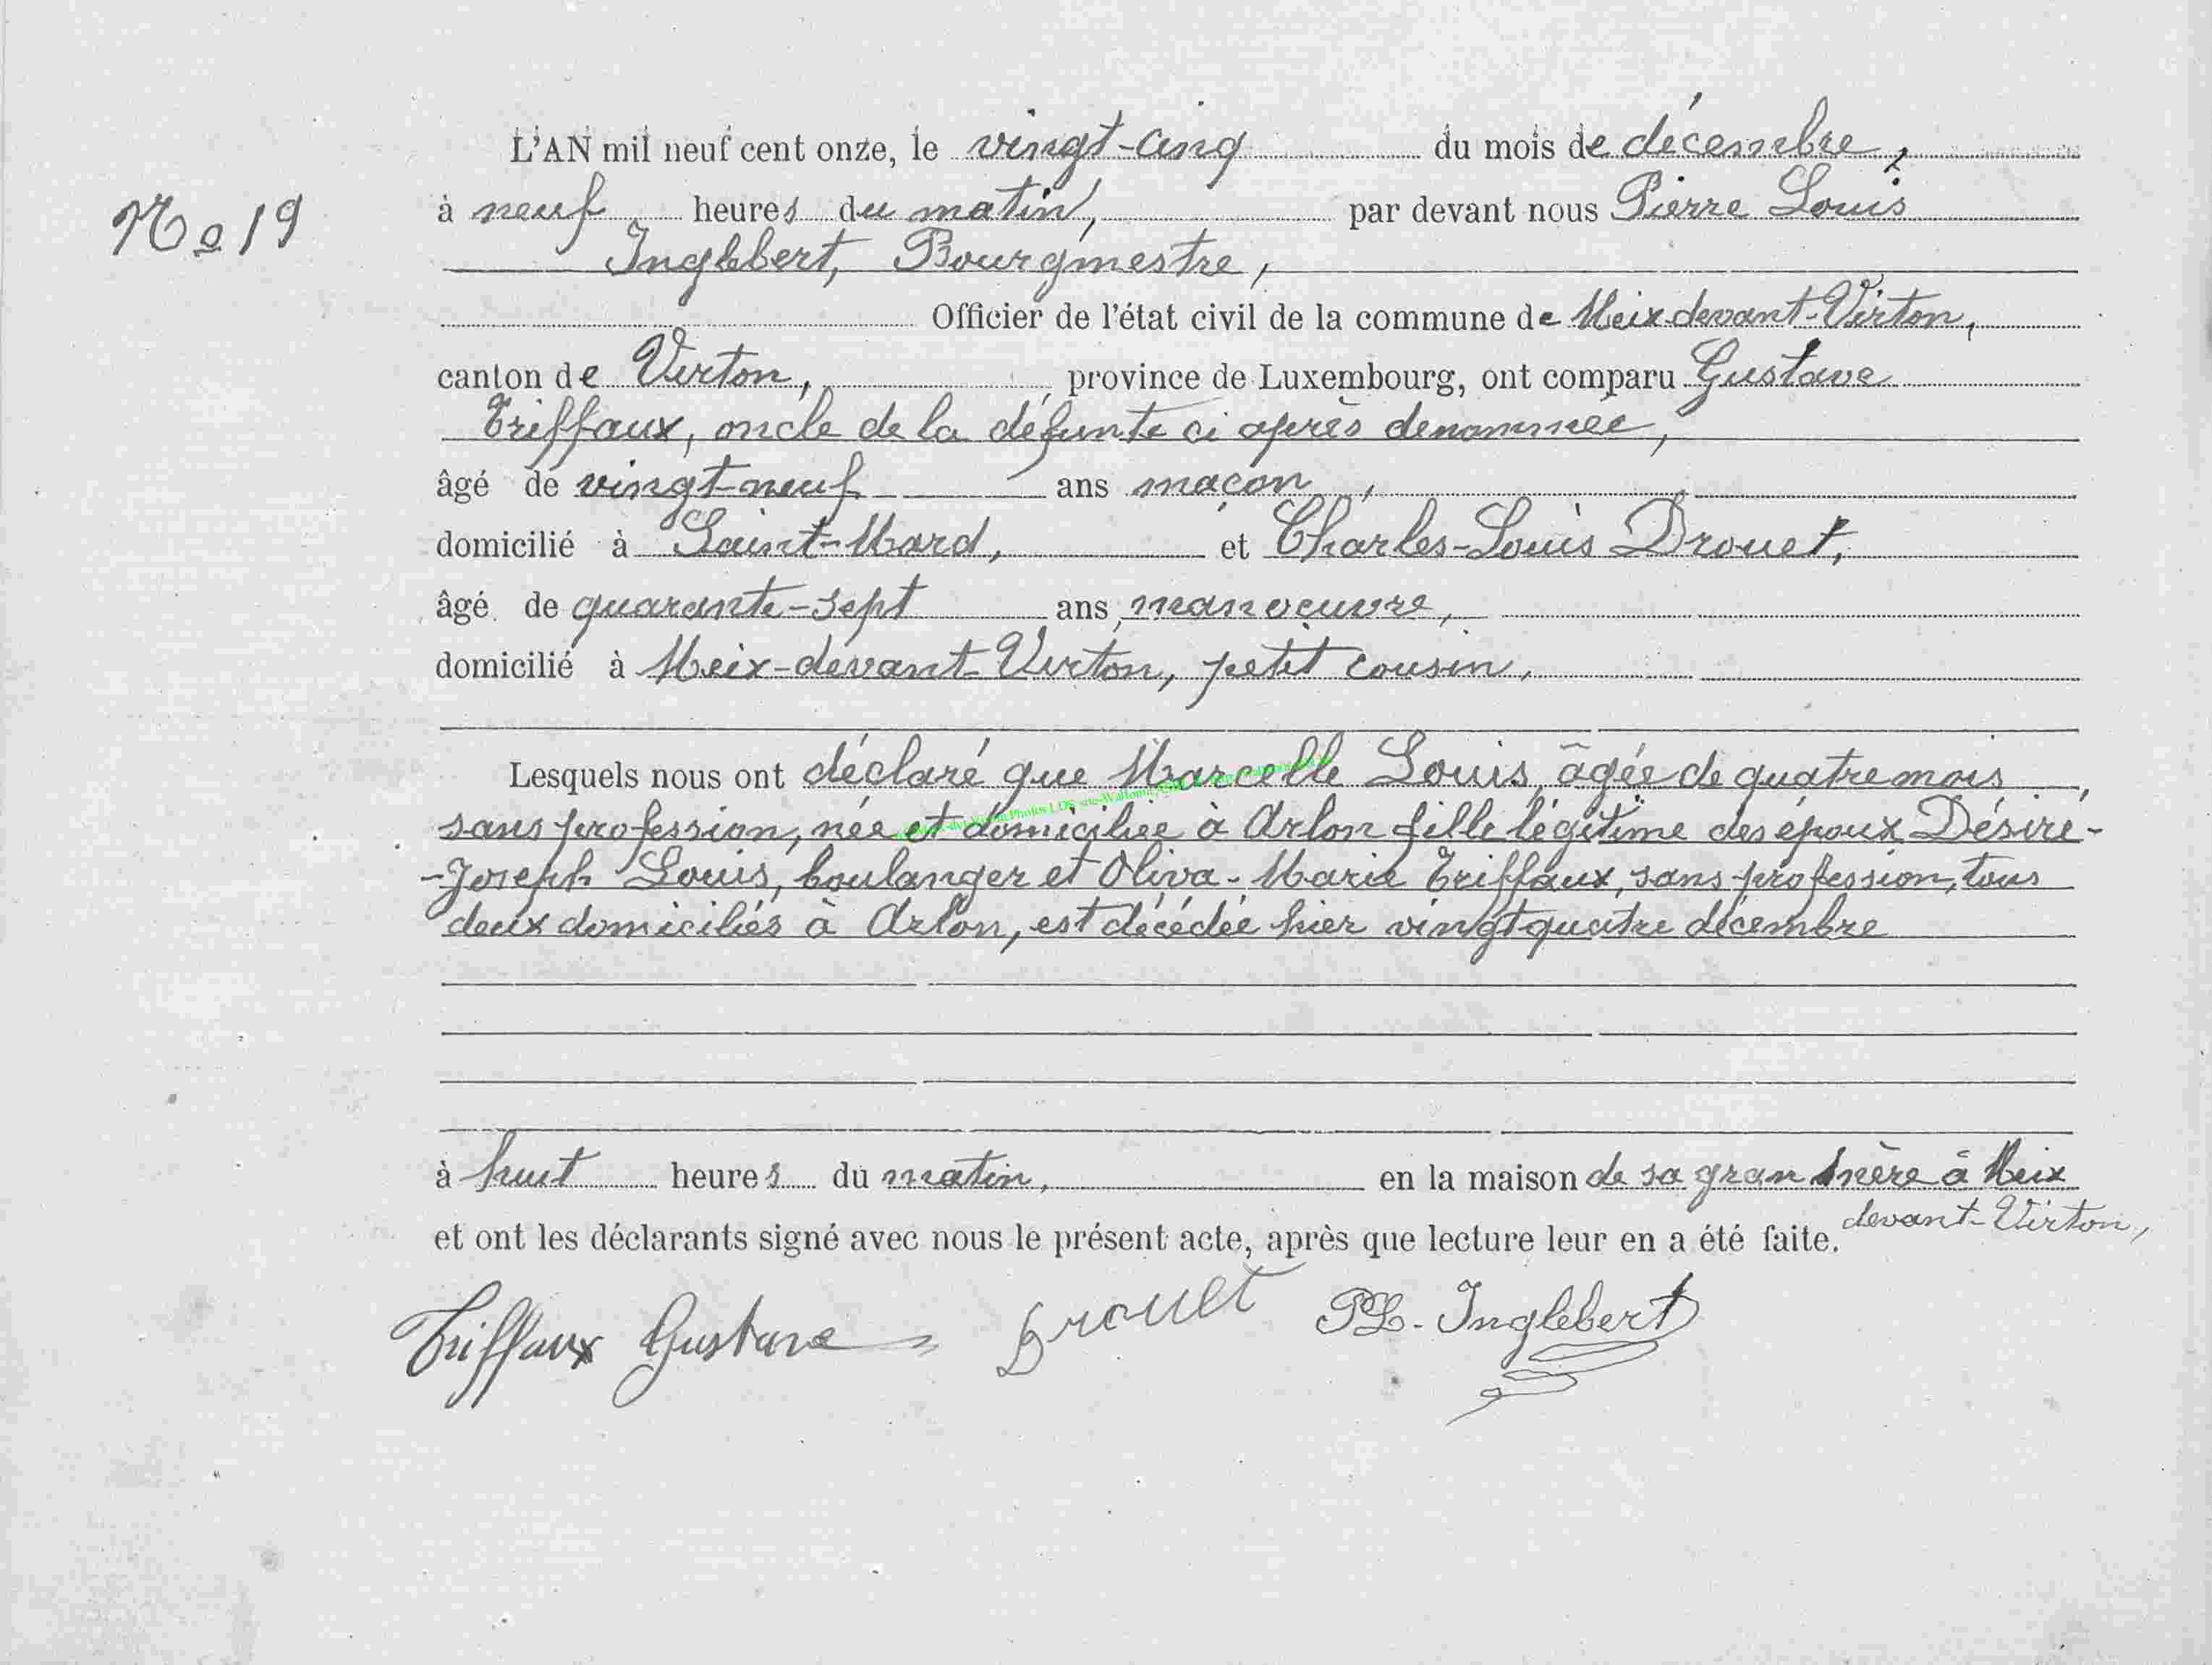 L'AN mil neuf cent onze, le vingt-cinq du mois de décembre,
No 19
à neuf heures du matin, par devant nous Pierre Louis
Inglebert, Bourgmestre,
Officier de l'état civil de la commune de Meix-devant-Virton,
canton de Virton, province de Luxembourg, ont comparu Gustave
Triffaux, oncle de la défunte ci après dénommée,
âgé de vingt-neuf ans maçon,
domicilié à Saint-Mard, et Charles-Louis Drouet,
âgé de quarante-sept ans, manoeuvre,
domicilié à Meix-devant-Virton, petit cousin,
Lesquels nous ont déclaré que Marcelle Louis, âgée de quatre mois,
sans profession, née et domiciliée à Arlon fille légitime des époux Désiré-
-Joseph Louis, boulanger et Oliva-Marie Triffaux, sans profession, tous
deux domiciliés à Arlon, est décédée hier vingt quatre décembre
à huit heures du matin, en la maison de sa gran mère à Meix
devant-Virton,
et ont les déclarants signé avec nous le présent acte, après que lecture leur en a été faite.
Triffaux Gustave Drouet PL. Inglebert